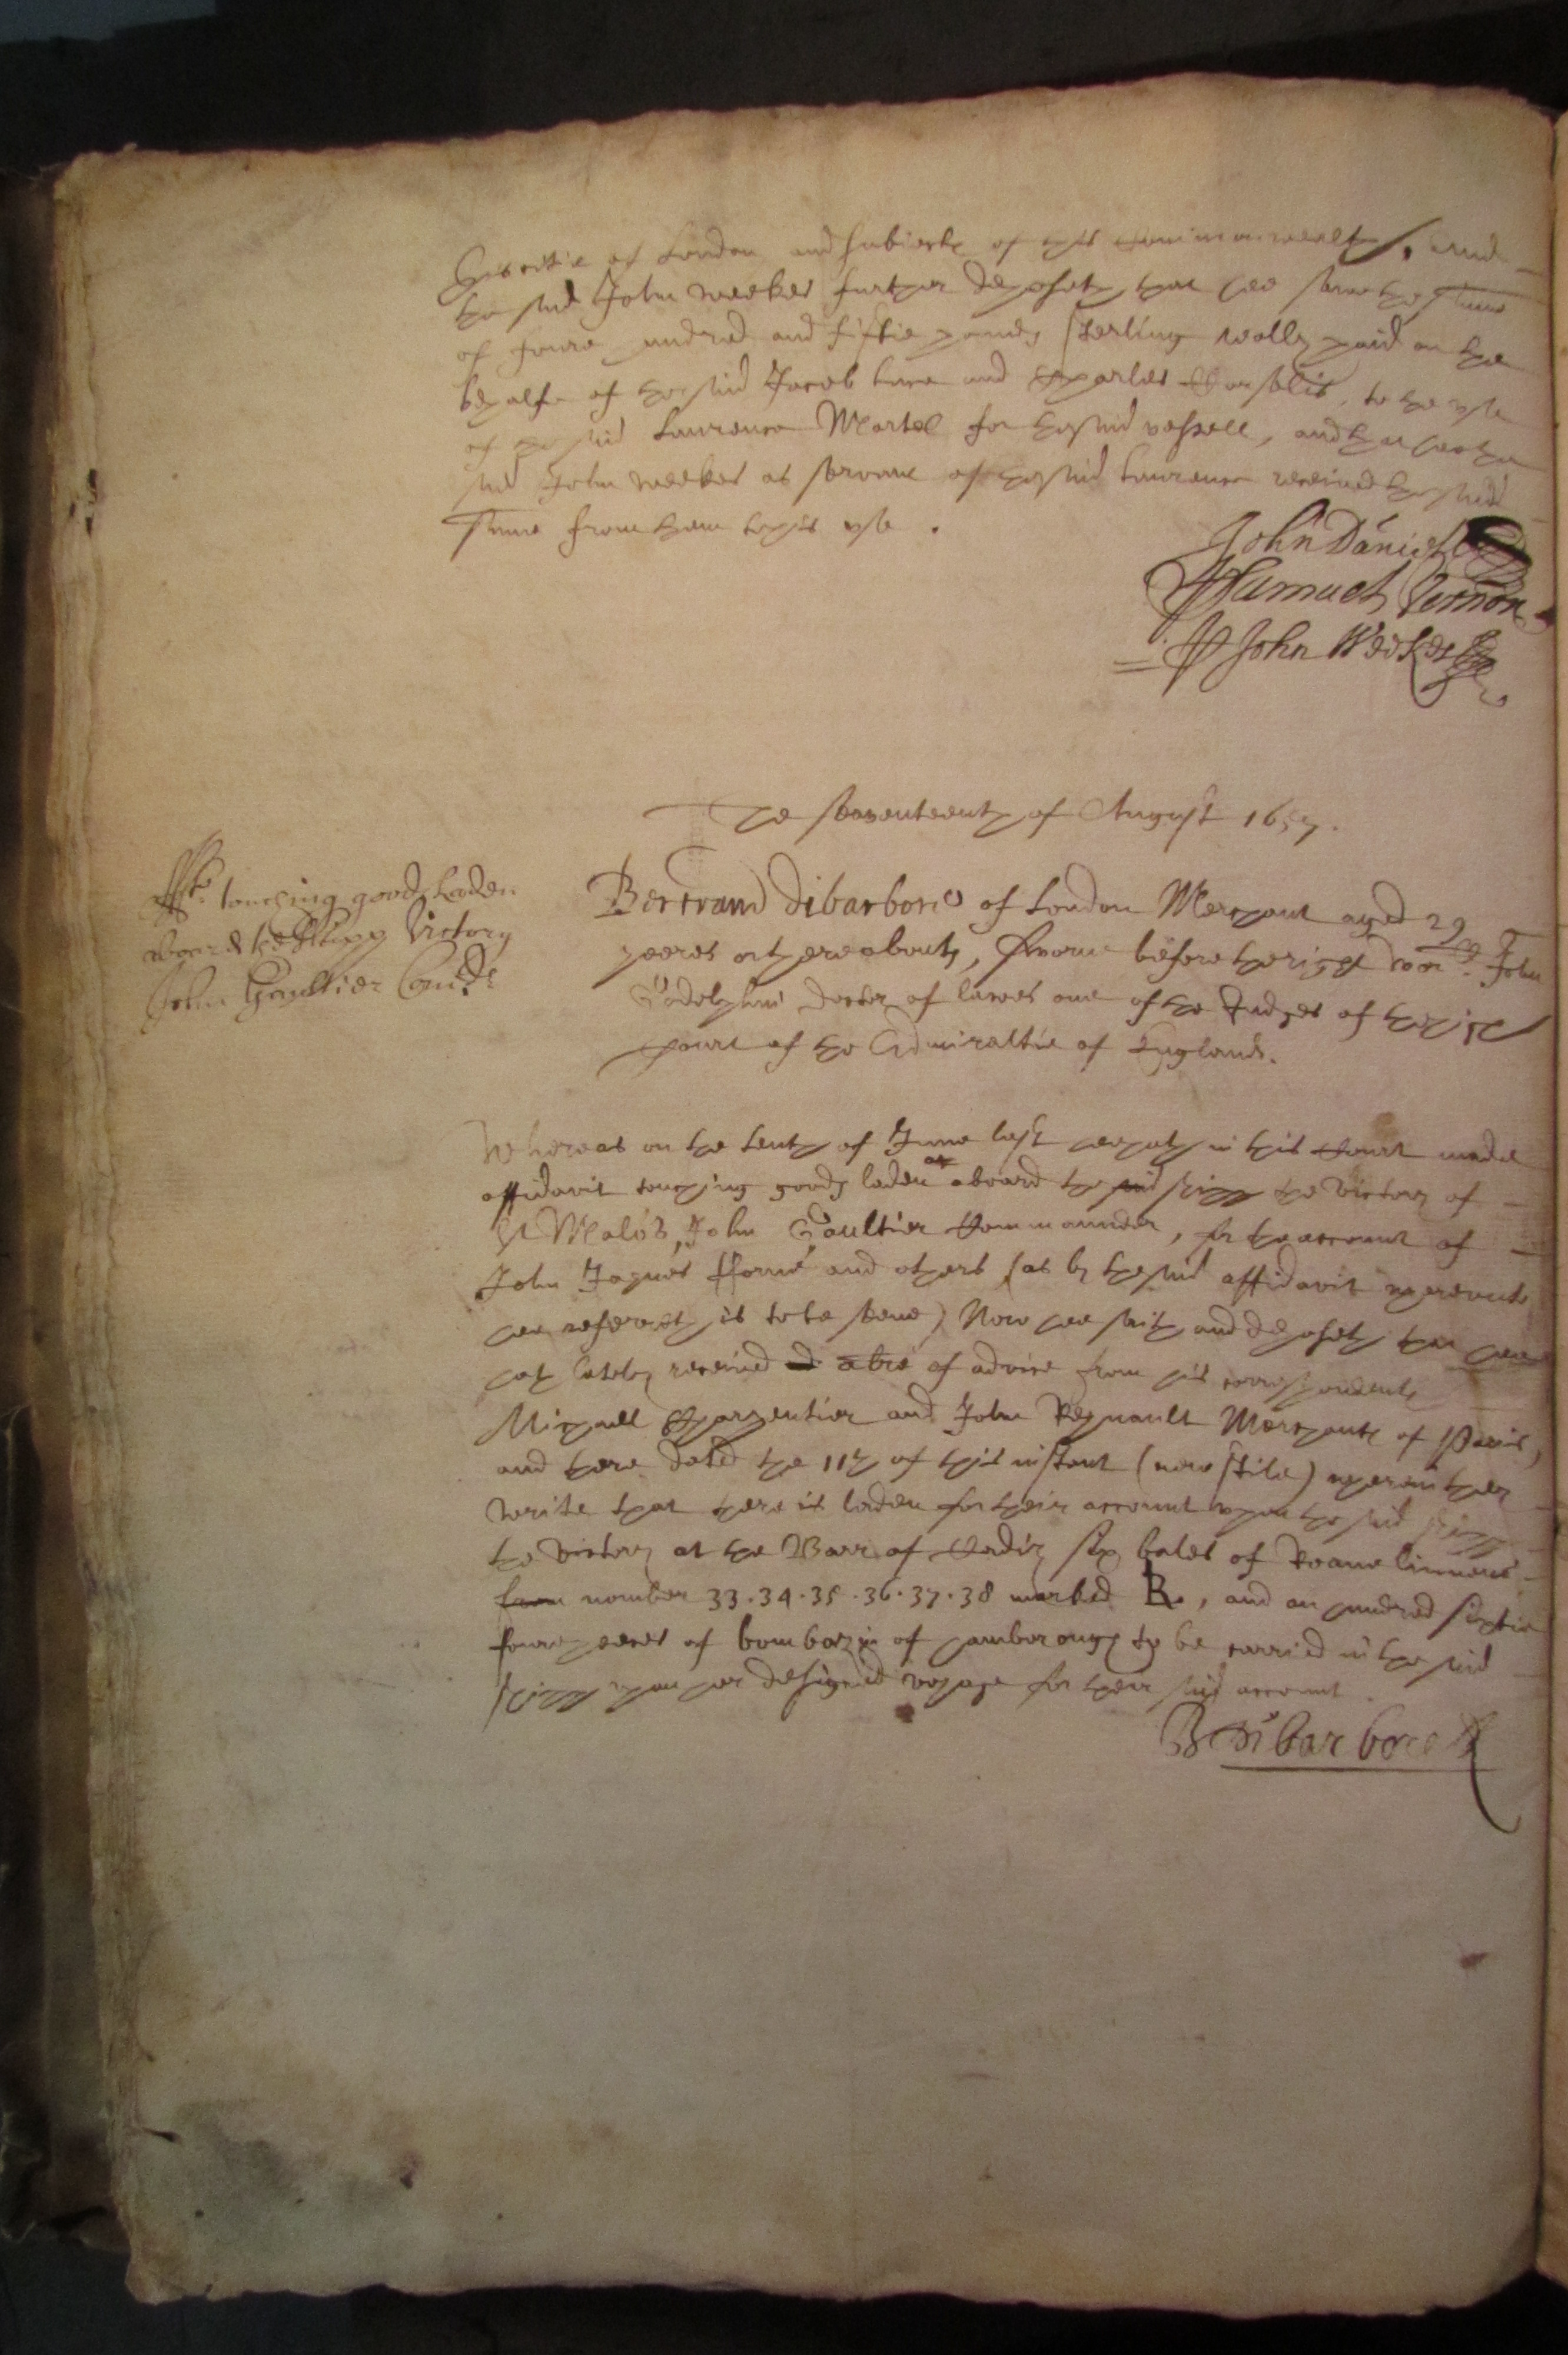 this citie of London and subiects of this Commonwealth, And
the said John Weekes further deposeth that hee sawe the summe
of foure hundred and fiftie pounds sterling really paid on the
behalfe of the said Jacob Luce and Charles to the use
of the said Laurence Martel for the said vessell, and that hee the
said John Weekes as servant of the said Laurence received the said
summe from them to his use.
John Daniel
Samuel Vernon
John Weekes
The seaventeenth of August 1657.
Afft. touching goods laden
aboard the Shipp Victory
John Gaultier Comdr.
Bertrand Dibarbore of London Merchant aged 29
yeeres or thereabouts, sworne before the right worll. John
Godolphin doctor of lawes one of the Judges of the high
Court of the Admiraltie of England.
Whereas on the tenth of June last hee hath in this Court made
affidavit touching goods laden or aboard the said shipp the Victory of
St Malo's, John Gaultier Commannder, for the account of
John Jaques fforné and others (as by the said affidavit whereunto
hee referreth is to be seene) Now hee saith and deposeth that hee
hath lately received a lre of advice from his correspondents
Michaell Charpentier and John Regnault Merchants of Paris,
and there dated the 11th of this instant (new stile) wherein they
write that there is laden for their account upon the said shipp
the Victory at the Barr of Cadiz six bales of Roane linnens
from number 33.34.35.36.37.38 marked R, and an hundred sixtie
foure peeces of bombazin of hamborough to be carried in the said
shipp upon her designed voyage for their said account.
B Dibarbore